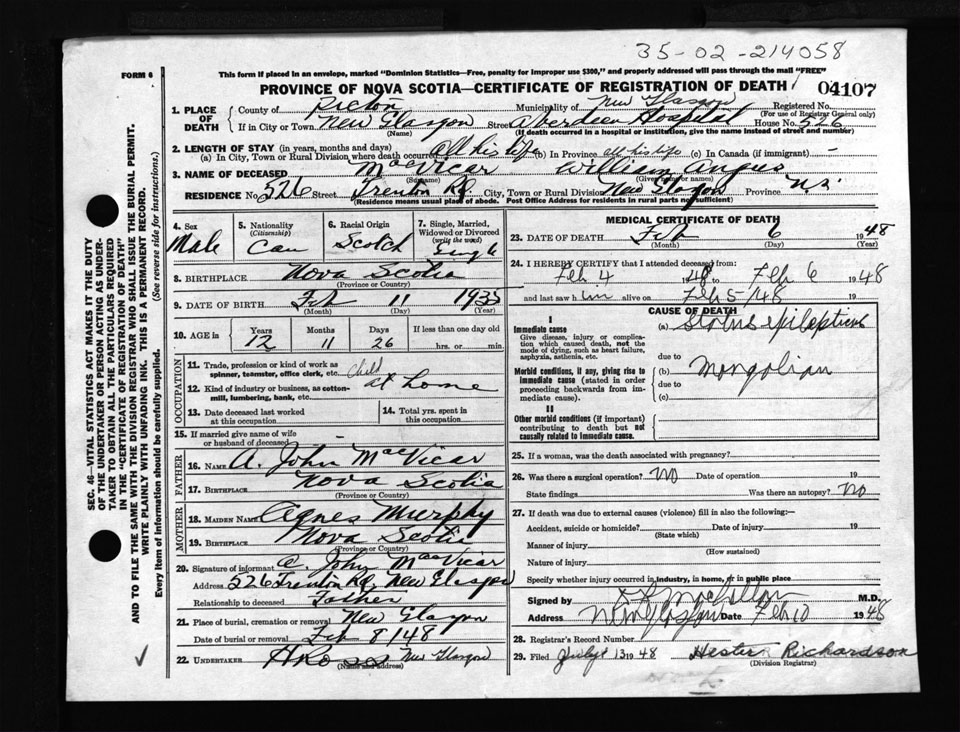 35-02-214058
FORM 6
This form if placed in an envelope, marked "Dominion Statistics—Free, penalty for improper use $300," and properly addressed will pass through the mail "FREE"
PROVINCE OF NOVA SCOTIA—CERTIFICATE OF REGISTRATION OF DEATH 04107
1. PLACE OF DEATH
County of Pictou Municipality of New Glasgow Registered No.
(For use of Registrar General only)
If in City or Town New Glasgow Street Aberdeen Hospital House No. 526
(Name) (If death occurred in a hospital or institution, give the name instead of street and number)
2. LENGTH OF STAY (in years, months and days)
(a) In City, Town or Rural Division where death occurred All his life (b) In Province all his life (c) In Canada (if immigrant) —
3. NAME OF DECEASED MacVicar William Angus
(Surname) (Given name or names)
RESIDENCE No. 526 Street Trenton Rd. City, Town or Rural Division New Glasgow Province N.S.
(Residence means usual place of abode. Post Office Address for residents in rural parts not sufficient)
4. Sex Male
5. Nationality (Citizenship) Can
6. Racial Origin Scotch
7. Single, Married, Widowed or Divorced (write the word) Single
8. BIRTHPLACE Nova Scotia
(Province or Country)
9. DATE OF BIRTH Feb 11 1935
(Month) (Day) (Year)
10. AGE in Years Months Days If less than one day old
12 11 26 hrs. or min.
OCCUPATION
11. Trade, profession or kind of work as spinner, teamster, office clerk, etc. Child
12. Kind of industry or business, as cotton-mill, lumbering, bank, etc. at home
13. Date deceased last worked at this occupation
14. Total yrs. spent in this occupation
15. If married give name of wife or husband of deceased —
FATHER
16. NAME A. John MacVicar
17. BIRTHPLACE Nova Scotia
(Province or Country)
MOTHER
18. MAIDEN NAME Agnes Murphy
19. BIRTHPLACE Nova Scotia
(Province or Country)
20. Signature of informant A. John MacVicar
Address 526 Trenton Rd, New Glasgow
Relationship to deceased Father
21. Place of burial, cremation or removal New Glasgow
Date of burial or removal Feb 8/48
22. UNDERTAKER New Glasgow
(Name and address)
MEDICAL CERTIFICATE OF DEATH
23. DATE OF DEATH Feb 6 1948
(Month) (Day) (Year)
24. I HEREBY CERTIFY that I attended deceased from:
Feb 4 1948 to Feb 6 1948
and last saw him alive on Feb 5/48 19
CAUSE OF DEATH
I
Immediate cause
Give disease, injury or complication which caused death, not the mode of dying, such as heart failure, asphyxia, asthenia, etc.
(a) Status epilepticus
due to
Morbid conditions, if any, giving rise to immediate cause (stated in order proceeding backwards from immediate cause).
(b) Mongolian
due to
(c)
II
Other morbid conditions (if important) contributing to death but not causally related to immediate cause.
25. If a woman, was the death associated with pregnancy?
26. Was there a surgical operation? No Date of operation 19
State findings Was there an autopsy? No
27. If death was due to external causes (violence) fill in also the following:—
Accident, suicide or homicide? Date of injury 19
(State which)
Manner of injury
(How sustained)
Nature of injury
Specify whether injury occurred in industry, in home, or in public place
Signed by M.D.
Address New Glasgow Date Feb 10 1948
28. Registrar's Record Number
29. Filed July 13 1948 Hester Richardson
(Division Registrar)
SEC. 46—VITAL STATISTICS ACT MAKES IT THE DUTY
OF THE UNDERTAKER OR PERSON ACTING AS UNDERTAKER TO OBTAIN ALL THE PARTICULARS REQUIRED
IN THE "CERTIFICATE OF REGISTRATION OF DEATH"
AND TO FILE THE SAME WITH THE DIVISION REGISTRAR WHO SHALL ISSUE THE BURIAL PERMIT.
WRITE PLAINLY WITH UNFADING INK. THIS IS A PERMANENT RECORD.
Every item of information should be carefully supplied. (See reverse side for instructions.)